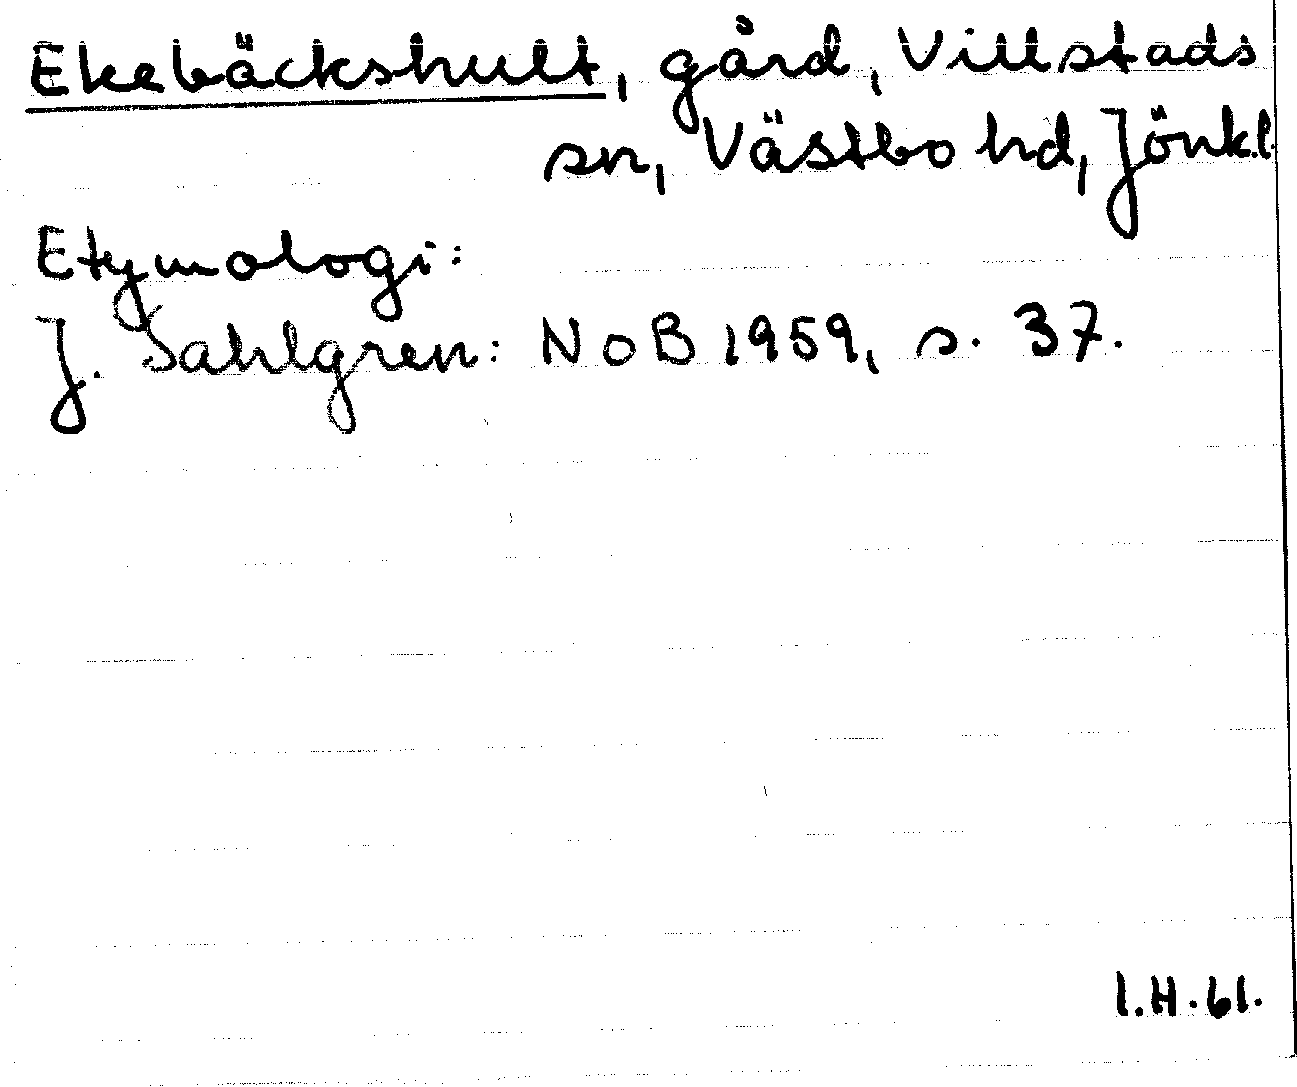 Ekebäckshult, gård, Villstads
sn, Västbo hd, Jönk.l.
Etymologi:
J. Sahlgren: NoB 1959, s. 37.
I.H. 61.